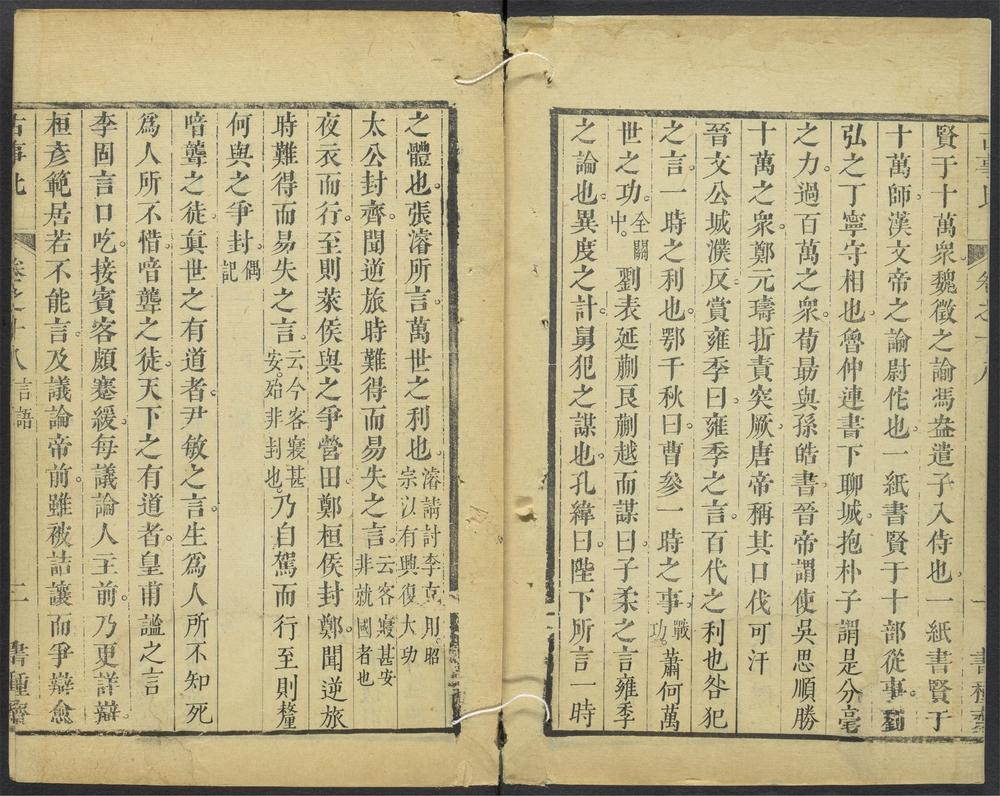 賢于十萬衆魏徵之論馮盎遣子入侍也一紙書賢于
十萬師漢文帝之諭尉佗也一紙書賢于十部從事劉
弘之丁寧守相也魯仲連書下聊城抱朴子謂是分毫
之力過百萬之衆荀勗與孫皓書晉帝謂使吳思順勝
十萬之衆鄭元璹折責突厥唐帝稱其口伐可汗
晉文公城濮反賞雍季曰雍季之言百代之利也咎犯
之言一時之利也鄂千秋曰曹參一時之事戰功蕭何萬
世之功全關中劉表延蒯良蒯越而謀曰子柔之言雍季
之論也異度之計舅犯之謀也孔緯曰陛下所言一時
之體也張濬所言萬世之利也濬請討李克用昭宗以有興復大功
太公封齊聞逆旅時難得而易失之言云客寢甚安非就國者也
夜衣而行至則萊侯與之爭營田鄭桓侯封鄭聞逆旅
時難得而易失之言云今客寢甚安殆非封也乃自駕而行至則釐
何與之爭封偶記
喑聾之徒眞世之有道者尹敏之言生爲人所不知死
爲人所不惜喑聾之徒天下之有道者皇甫謐之言
李固言口吃接賓客頗蹇緩每議論人主前乃更詳辯
桓彥範居若不能言及議論帝前雖被詰讓而爭辯愈
古事比 卷之十八 言語 二 書種齋